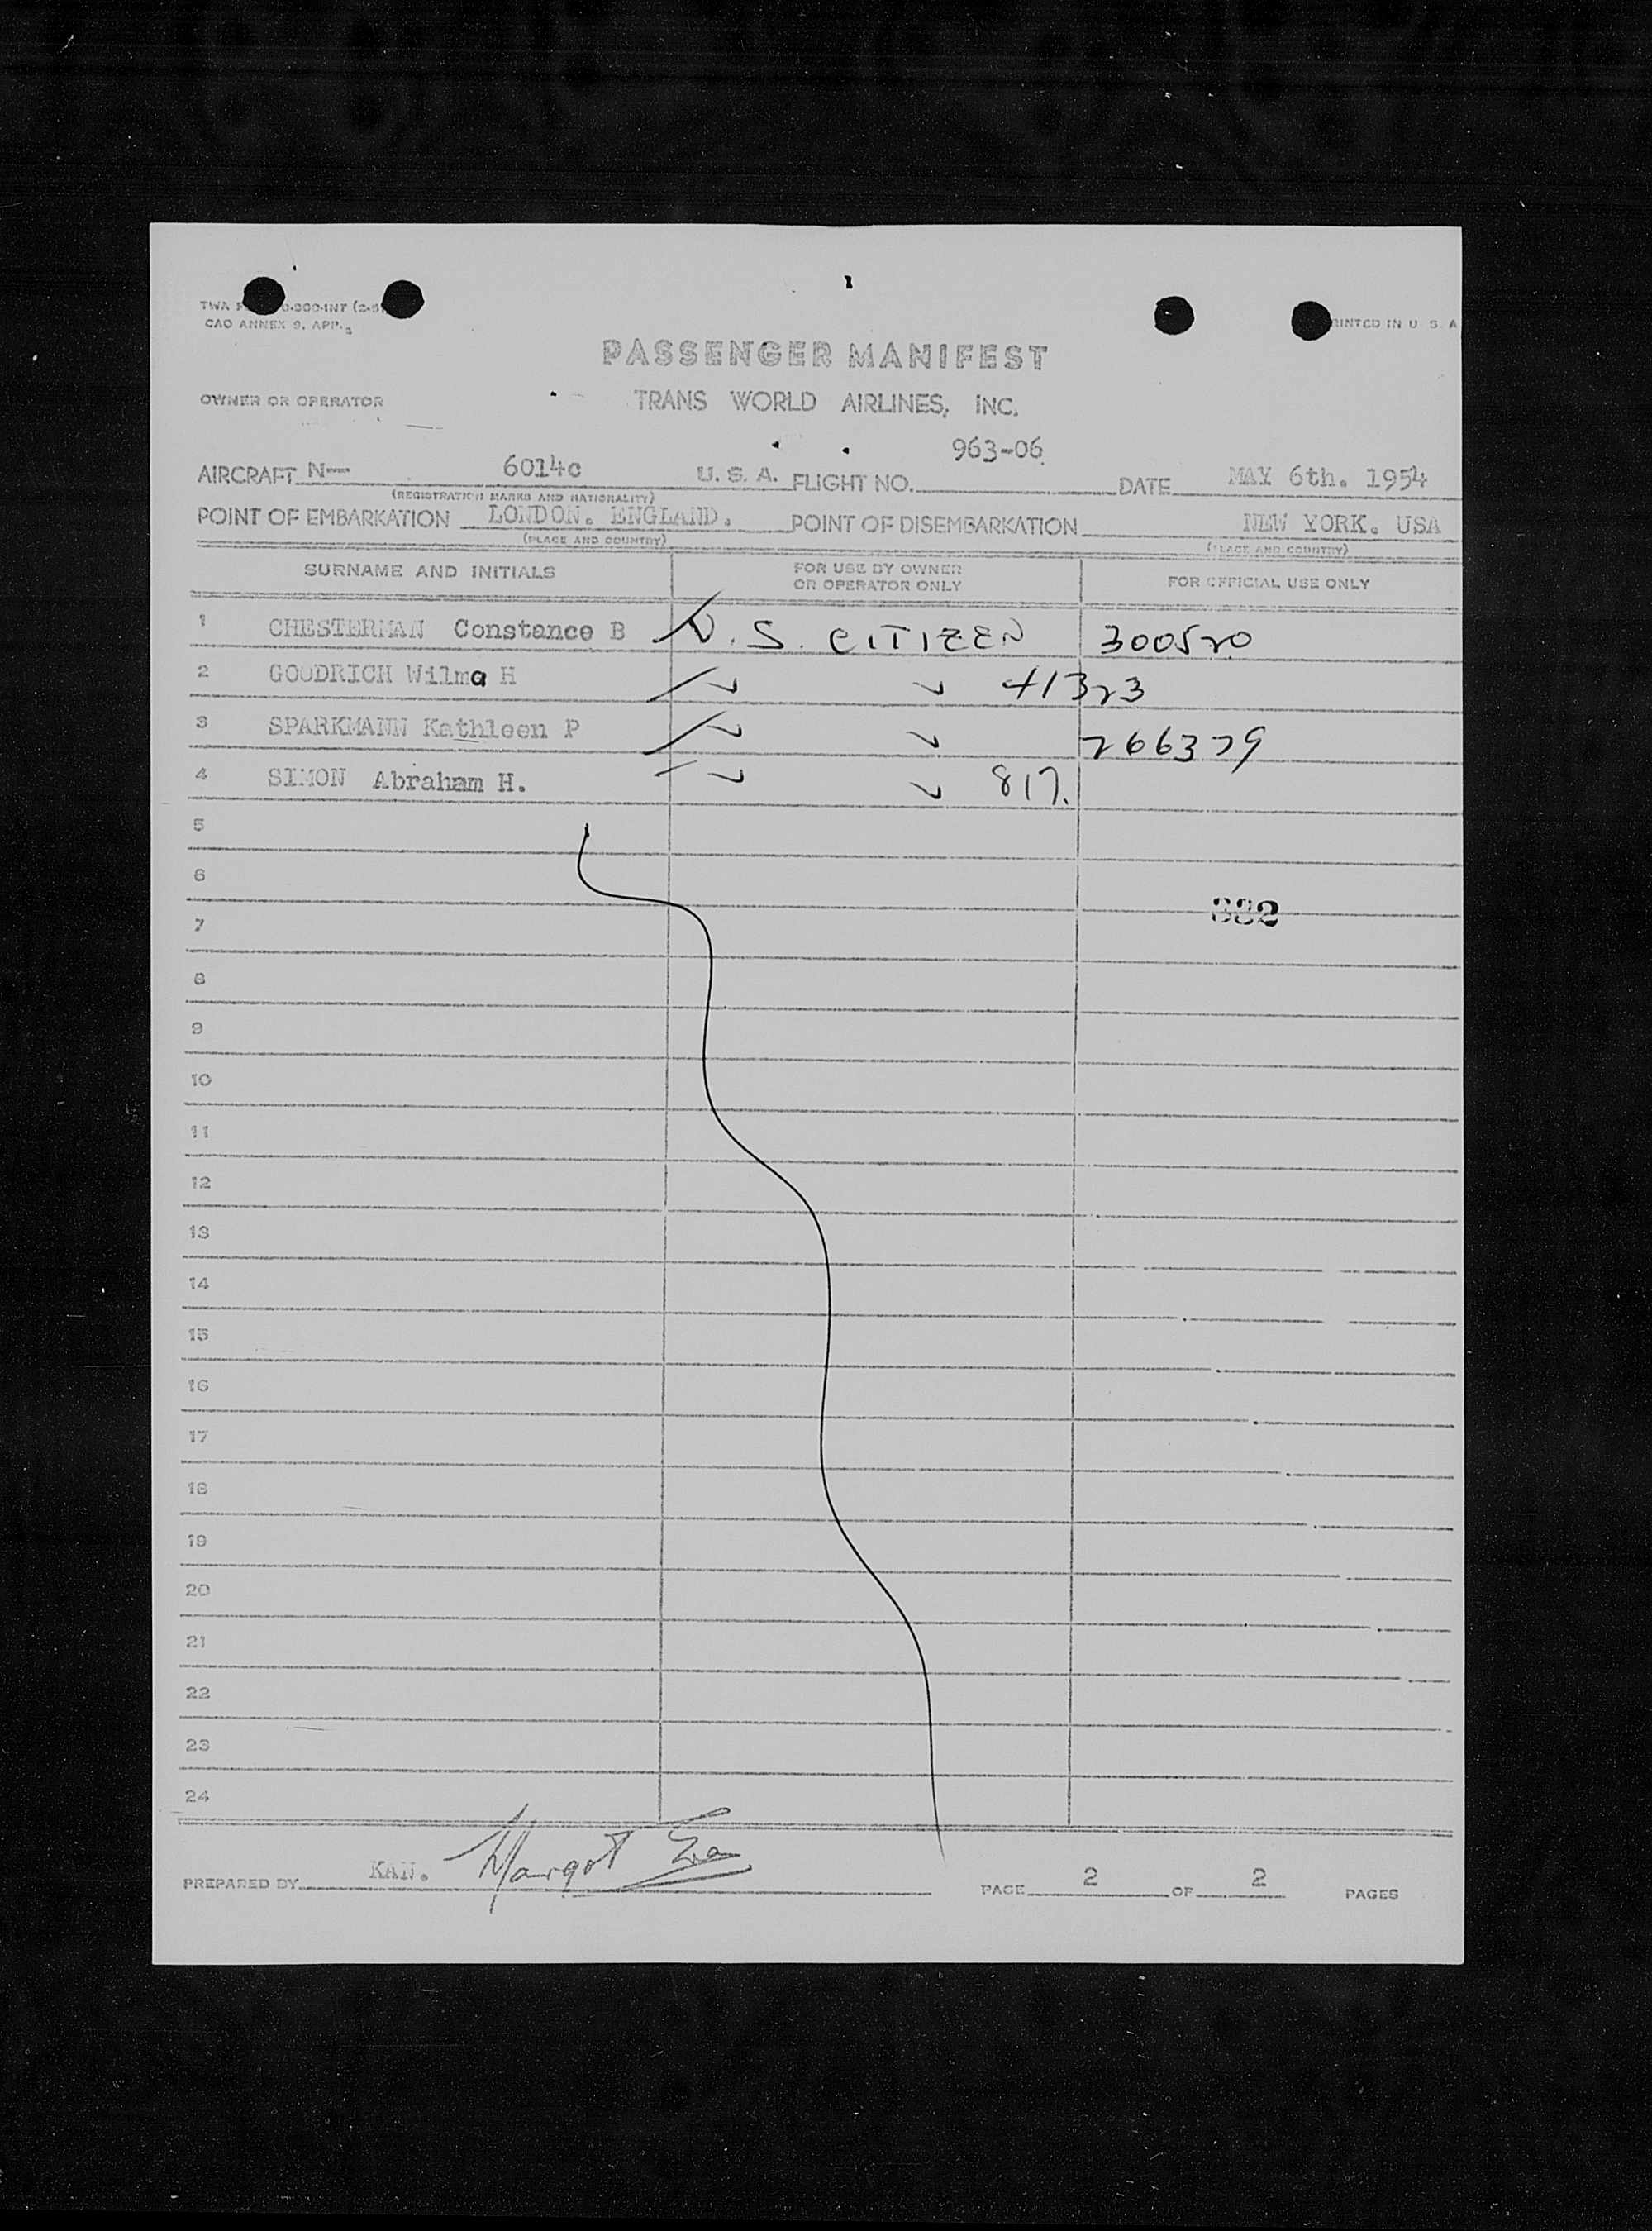 TWA
CAO ANNEX 9. APP.
PRINTED IN U S. A
PASSENGER MANIFEST
OWNER OR OPERATOR
TRANS WORLD AIRLINES, INC.
963-06
AIRCRAFT N-- 6014c U. S. A. FLIGHT NO. DATE MAY 6th. 1954
(REGISTRATION MARKS AND NATIONALITY)
POINT OF EMBARKATION LONDON. ENGLAND. POINT OF DISEMBARKATION NEW YORK. USA
(PLACE AND COUNTRY) (PLACE AND COUNTRY)
SURNAME AND INITIALS FOR USE BY OWNER OR OPERATOR ONLY FOR OFFICIAL USE ONLY
1 CHESTERMAN Constance B U.S. CITIZEN 300520
2 GOODRICH Wilma H 41323
3 SPARKMANN Kathleen P 266329
4 SIMON Abraham H. 817.
5
6
332
7
8
9
10
11
12
13
14
15
16
17
18
19
20
21
22
23
24
PREPARED BY KAN. Margot PAGE 2 OF 2 PAGES